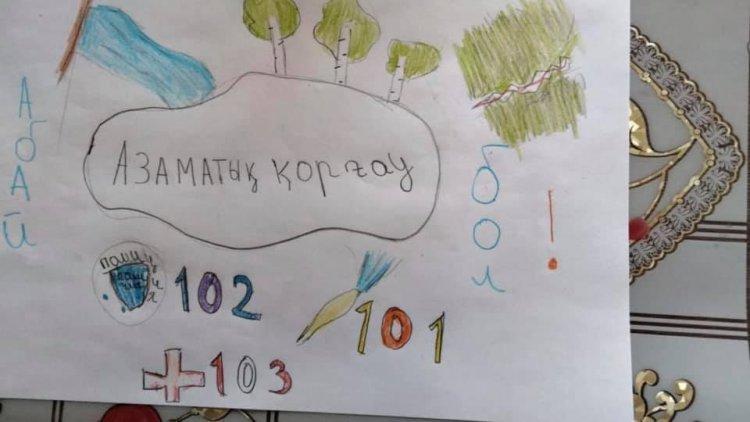 Абай
бол!
Азаматық қорғау
полиция
102
101
103